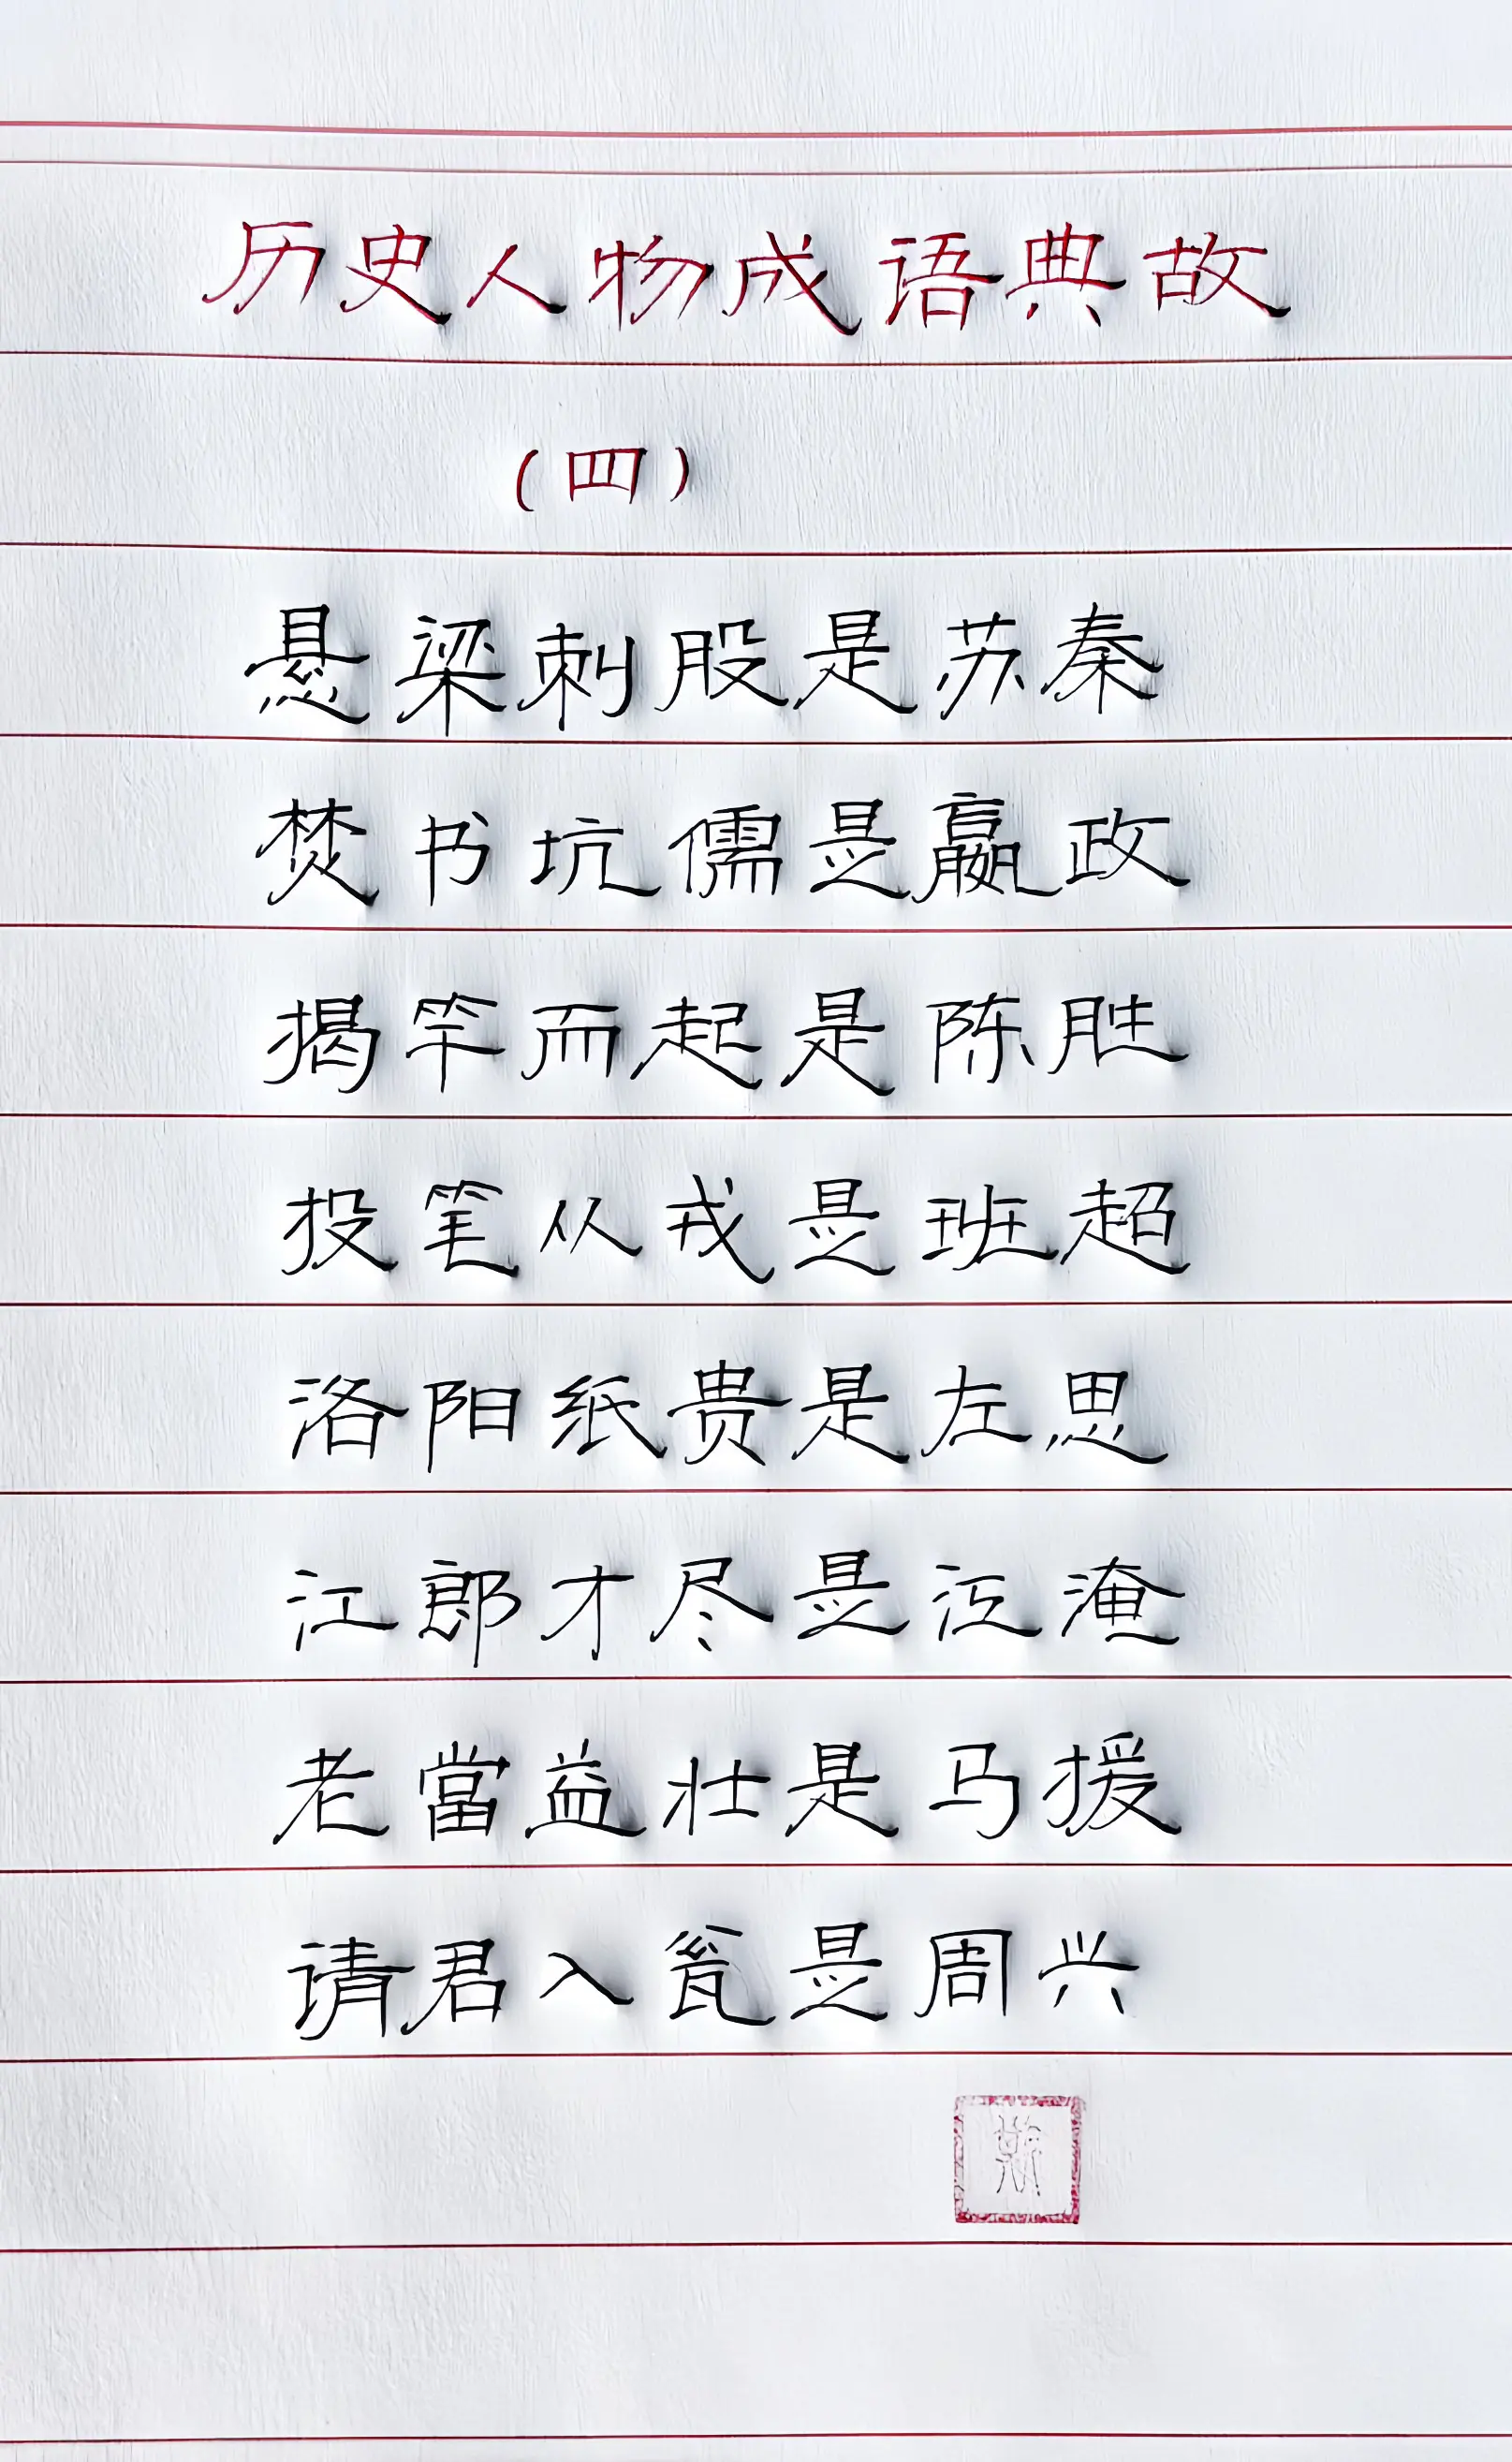 历史人物成语典故
（四）
悬梁刺股是苏秦
焚书坑儒是嬴政
揭竿而起是陈胜
投笔从戎是班超
洛阳纸贵是左思
江郎才尽是江淹
老當益壮是马援
请君入瓮是周兴